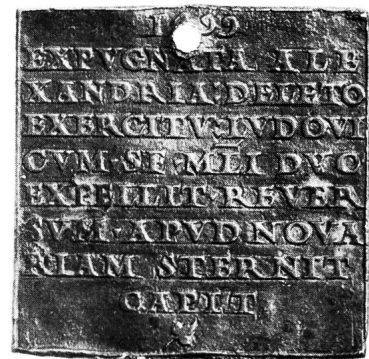 1499
EXPVGNATA ALE
XANDRIA·DELETO
EXERCITV·LVDOVI
CVM·SF·MLI DVC
EXPELLIT·REVER
SVM·APVD·NOVA
RIAM STERNIT
CAPIT